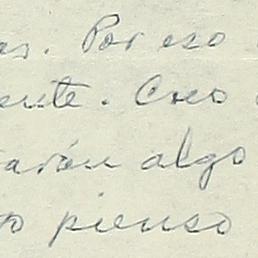 as. Por eso
ente. Creo
arán algo
pienso